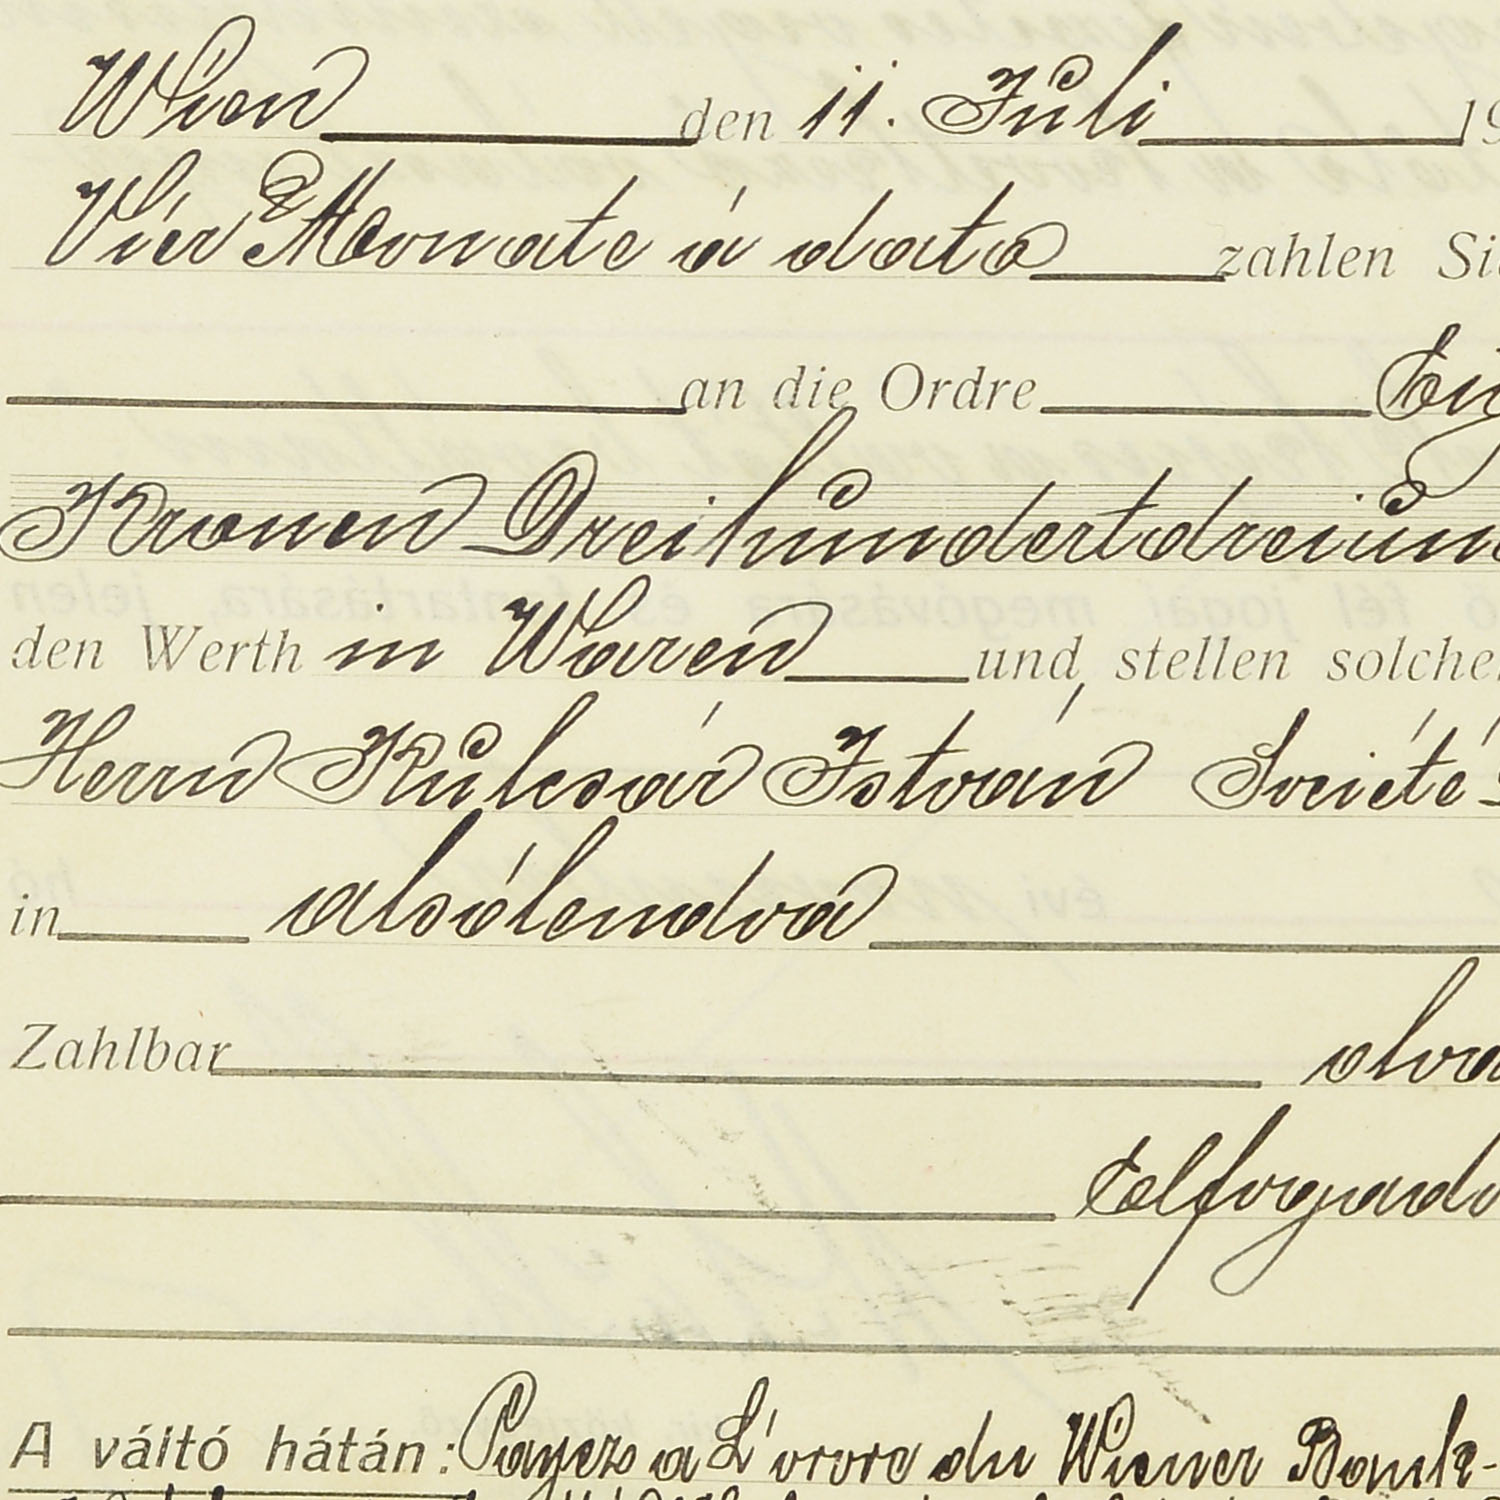 Wien den 11. Juli 19
Vier Monate á data zahlen Sie
an die Ordre Eig
Kronen Dreihundertdreiun
den Werth in Waren und stellen solche
Herrn Kulcsár István Sociéte
in alsólendva
Zahlbar olva
Elfogado
A váltó hátán: Payez a L'orore du Wiener Bank-